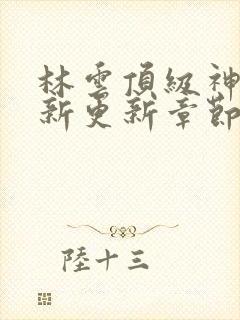 林雲頂級神
新更新章節
陸十三